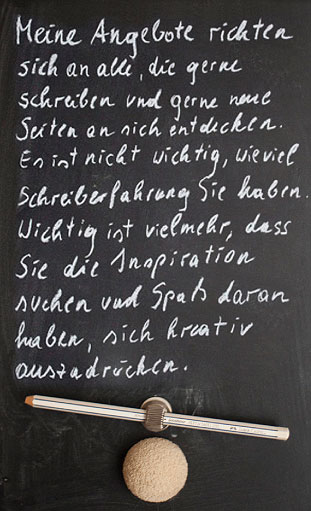 Meine Angebote richten
sich an alle, die gerne
schreiben und gerne neue
Seiten an sich entdecken.
Es ist nicht wichtig, wieviel
Schreiberfahrung Sie haben.
Wichtig ist vielmehr, dass
Sie die Inspiration
suchen und Spaß daran
haben, sich kreativ
auszudrücken.